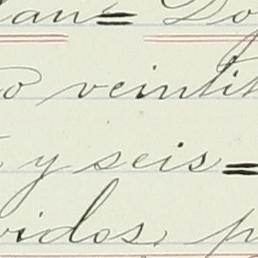 lan= Do
o veintit
y seis=
vidos, p